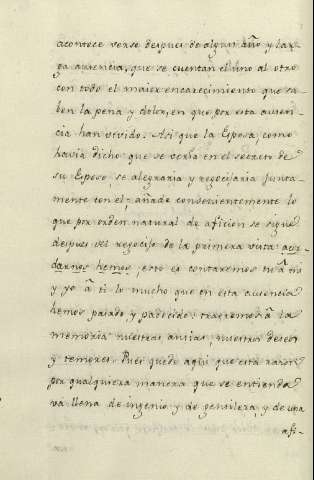 acontece verse despues de algun año y lar-
ga ausencia, que se cuentan el uno al otro
con todo el maior encarecimiento que sa
ben la pena y dolor, en que por esta ausen-
cia han vivido. Asi que la Esposa, como
havia dicho que se veria en el secreto de
su Esposo, se alegraria y regocijaria junta-
mente con el: añade consecuentemente lo
que por orden natural de aficion se sigue
despues del regocijo de la primera vista acor
darnos hemos, esto es contaremos tu â mi
y yo â ti lo mucho que en esta ausencia
hemos pasado, y padecido: trayremos â la
memoria nuestras ansias, nuestros deseos
y temores. Pues quede aqui que esta razon
por qualquiera manera que se entienda
va llena de ingenio y de gentileza, y de una
afi-